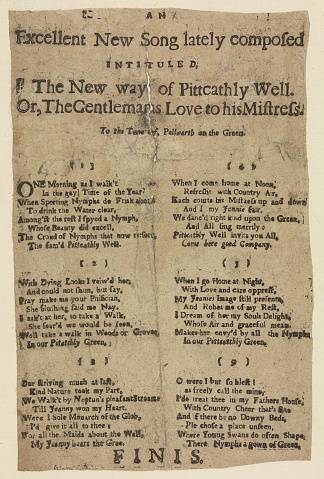 AN
Excellent New Song lately composed
INTITULED,
The New way of Pittcathly Well.
Or, The Gentlemans Love to his Mistress.
To the Tune of, Pollwarth on the Green.
( 1 )
ONE Morning as I walk't
In the gay Time of the Year
When Sporting Nymphs do Frisk about
To drink the Water clear,
Among'st the rest I spyed a Nymph,
Whose Beauty did excell,
The Crowd of Nymphs that now resort,
The fam'd Pittcathly Well.
( 2 )
With Dying Looks I veiw'd her,
And could not shun, but say,
Pray make me your Phisician,
She blushing said me Nay,
I ask't at her, to take a Walk,
She fear'd we would be seen,
Well take a walk in Woods or Groves
In our Pitcathly Green,
Our striving much at last,
Kind Nature took my Part,
We Walk't by Neptun's pleasant Streams
Till Jeanny won my Heart.
Were I Sole Monarch of the Glob,
I'd give it all to thee
For all the Maids about the Well,
My Jeanny bears the Gree.
When I come home at Noon,
Refresht with Country Air,
Each courts his Mistress up and down
And I my Jeannie fair.
We dance't right kind upon the Green,
And All sing merrily
Pittcathly Well invites you All,
Come here good Company.
When I go Home at Night,
With Love and Care opprest,
My Jeannies Image still presents,
And Robes me of my Rest,
I Dream of her my Souls Delight,
Whose Air and graceful mean
Makes her envy'd by all the Nymphs
In our Pittcathly Green,
O were I but so blest
as freely call the mine,
I'de treat thee in my Fathers House,
With Country Cheer that's fine
And if there be no Downy Beds,
I'le chose a place unseen,
Where Young Swans do often
There Nymphs a gown of Green.
FINIS.